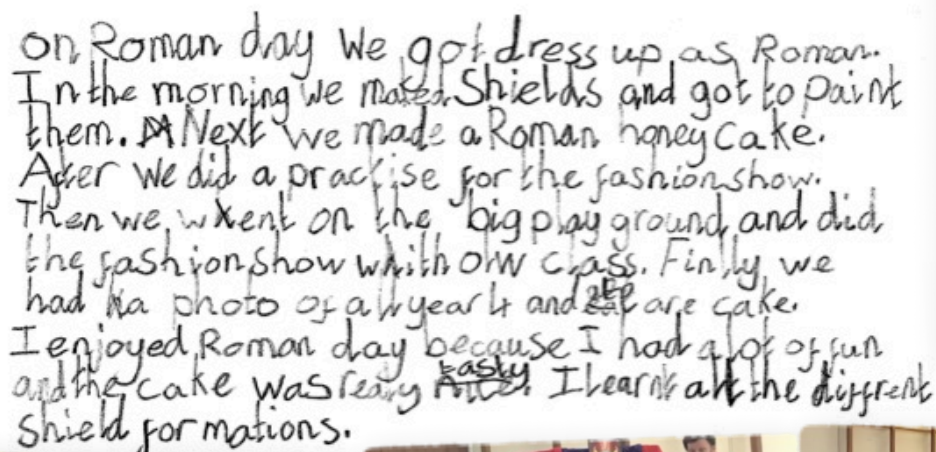 on Roman day We got dress up as Roman.
In the morning we maked Shields and got to paint
them. Next we made a Roman honey cake.
After We did a practise for the fashion show.
Then we went on the big play ground and did
the fashion show whith oww class. Finlly we
had a photo of all year 4 and ate are cake.
I enjoyed Roman day because I had a lot of fun
and the cake was really tasty. I learnt all the diffrent
shield formations.